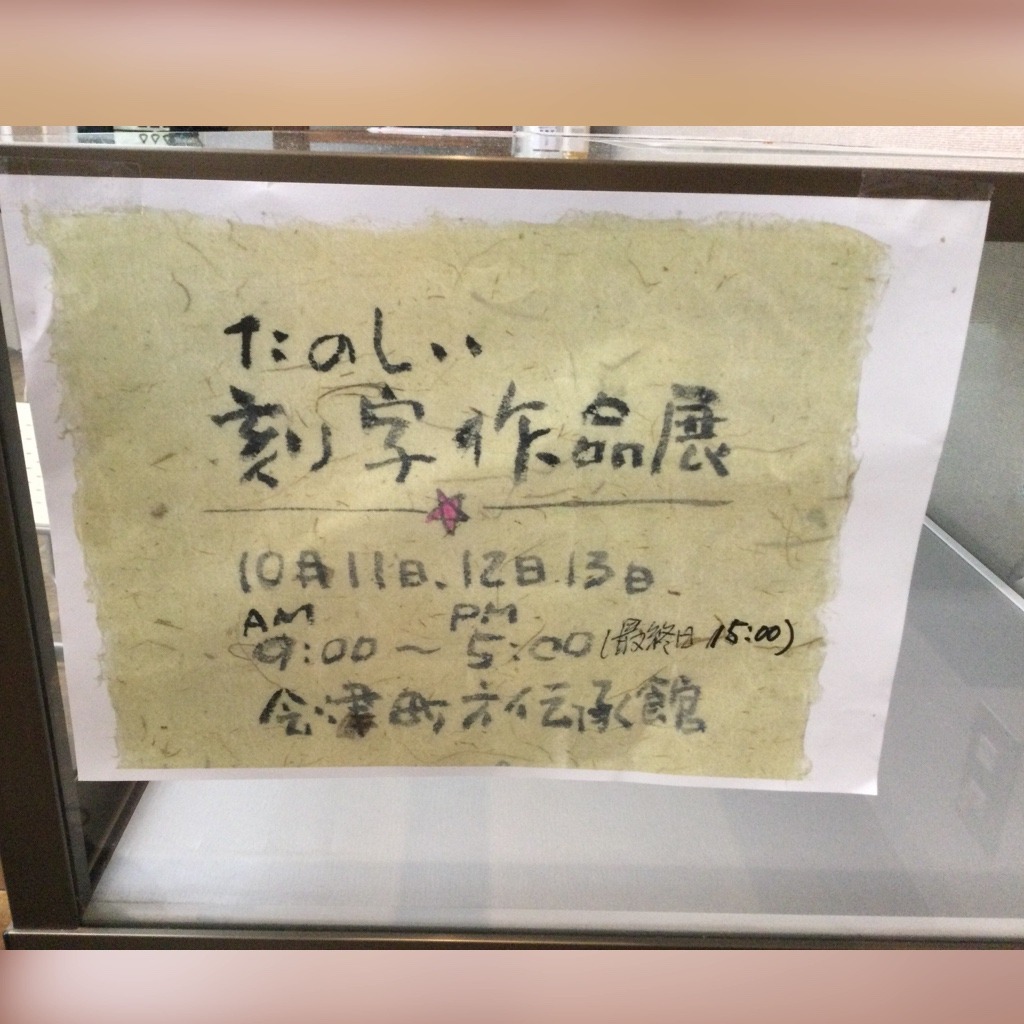 たのしい
刻字作品展
10月11日、12日.13日
AM PM
9:00～5:00(最終日 15:00)
会津町方伝承館